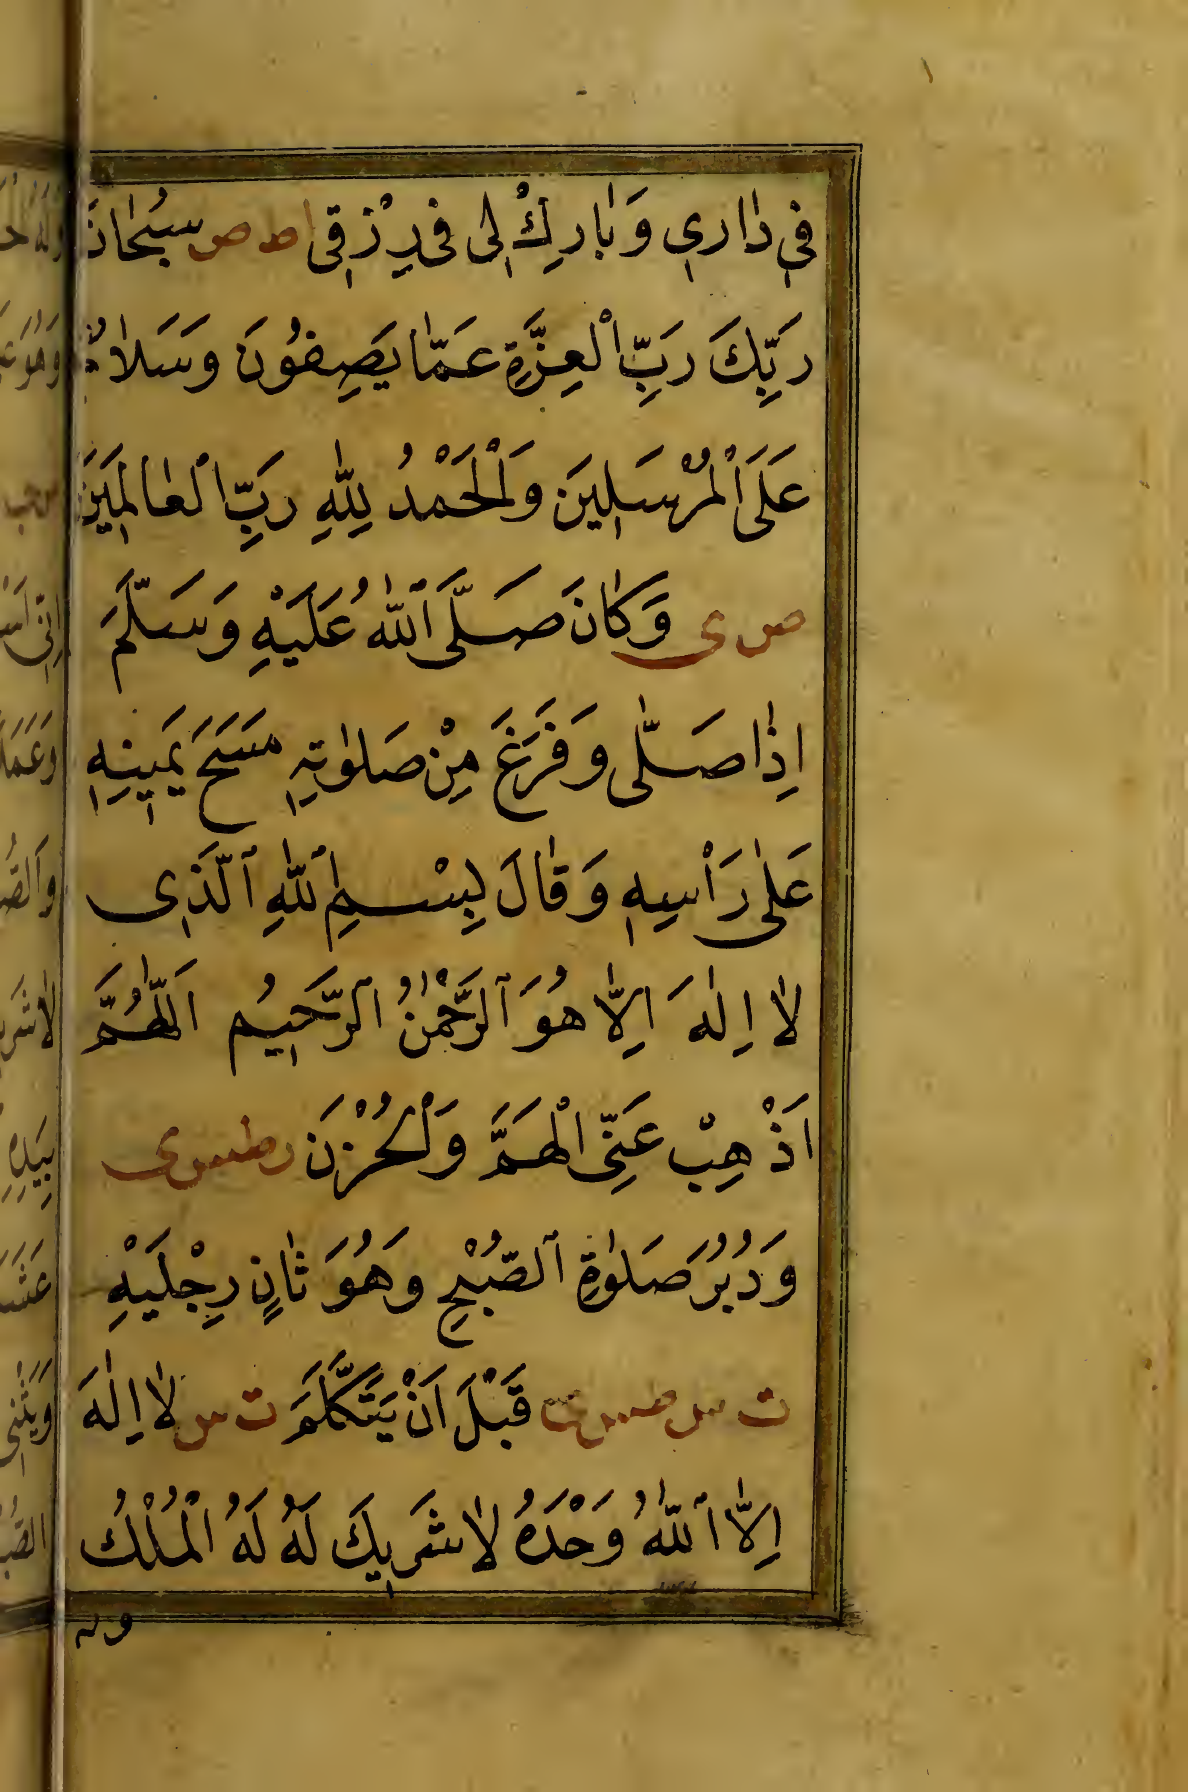 فِي دَارِي وَبَارِكْ لِي فِي رِزْقِي اط ص سُبْحَانَ
رَبِّكَ رَبِّ الْعِزَّةِ عَمَّا يَصِفُونَ وَسَلَامٌ
عَلَى الْمُرْسَلِينَ وَالْحَمْدُ لِلّٰهِ رَبِّ الْعَالَمِينَ
ص ى وَكَانَ صَلَّى اللّٰهُ عَلَيْهِ وَسَلَّمَ
اِذَا صَلّٰى وَفَرَغَ مِنْ صَلٰوتِهِ مَسَحَ يَمِينِهِ
عَلٰى رَأْسِهِ وَقَالَ بِسْمِ اللّٰهِ الَّذِى
لَا اِلٰهَ اِلَّا هُوَ الرَّحْمٰنُ الرَّحِيمُ اَللّٰهُمَّ
اَذْهِبْ عَنِّى الْهَمَّ وَالْحُزْنَ ر طس ى
وَدُبُرَ صَلٰوةِ الصُّبْحِ وَهُوَ ثَانٍ رِجْلَيْهِ
ت س طس ى قَبْلَ اَنْ يَتَكَلَّمَ ت س لَا اِلٰهَ
اِلَّا اللّٰهُ وَحْدَهُ لَا شَرِيكَ لَهُ لَهُ الْمُلْكُ
وله